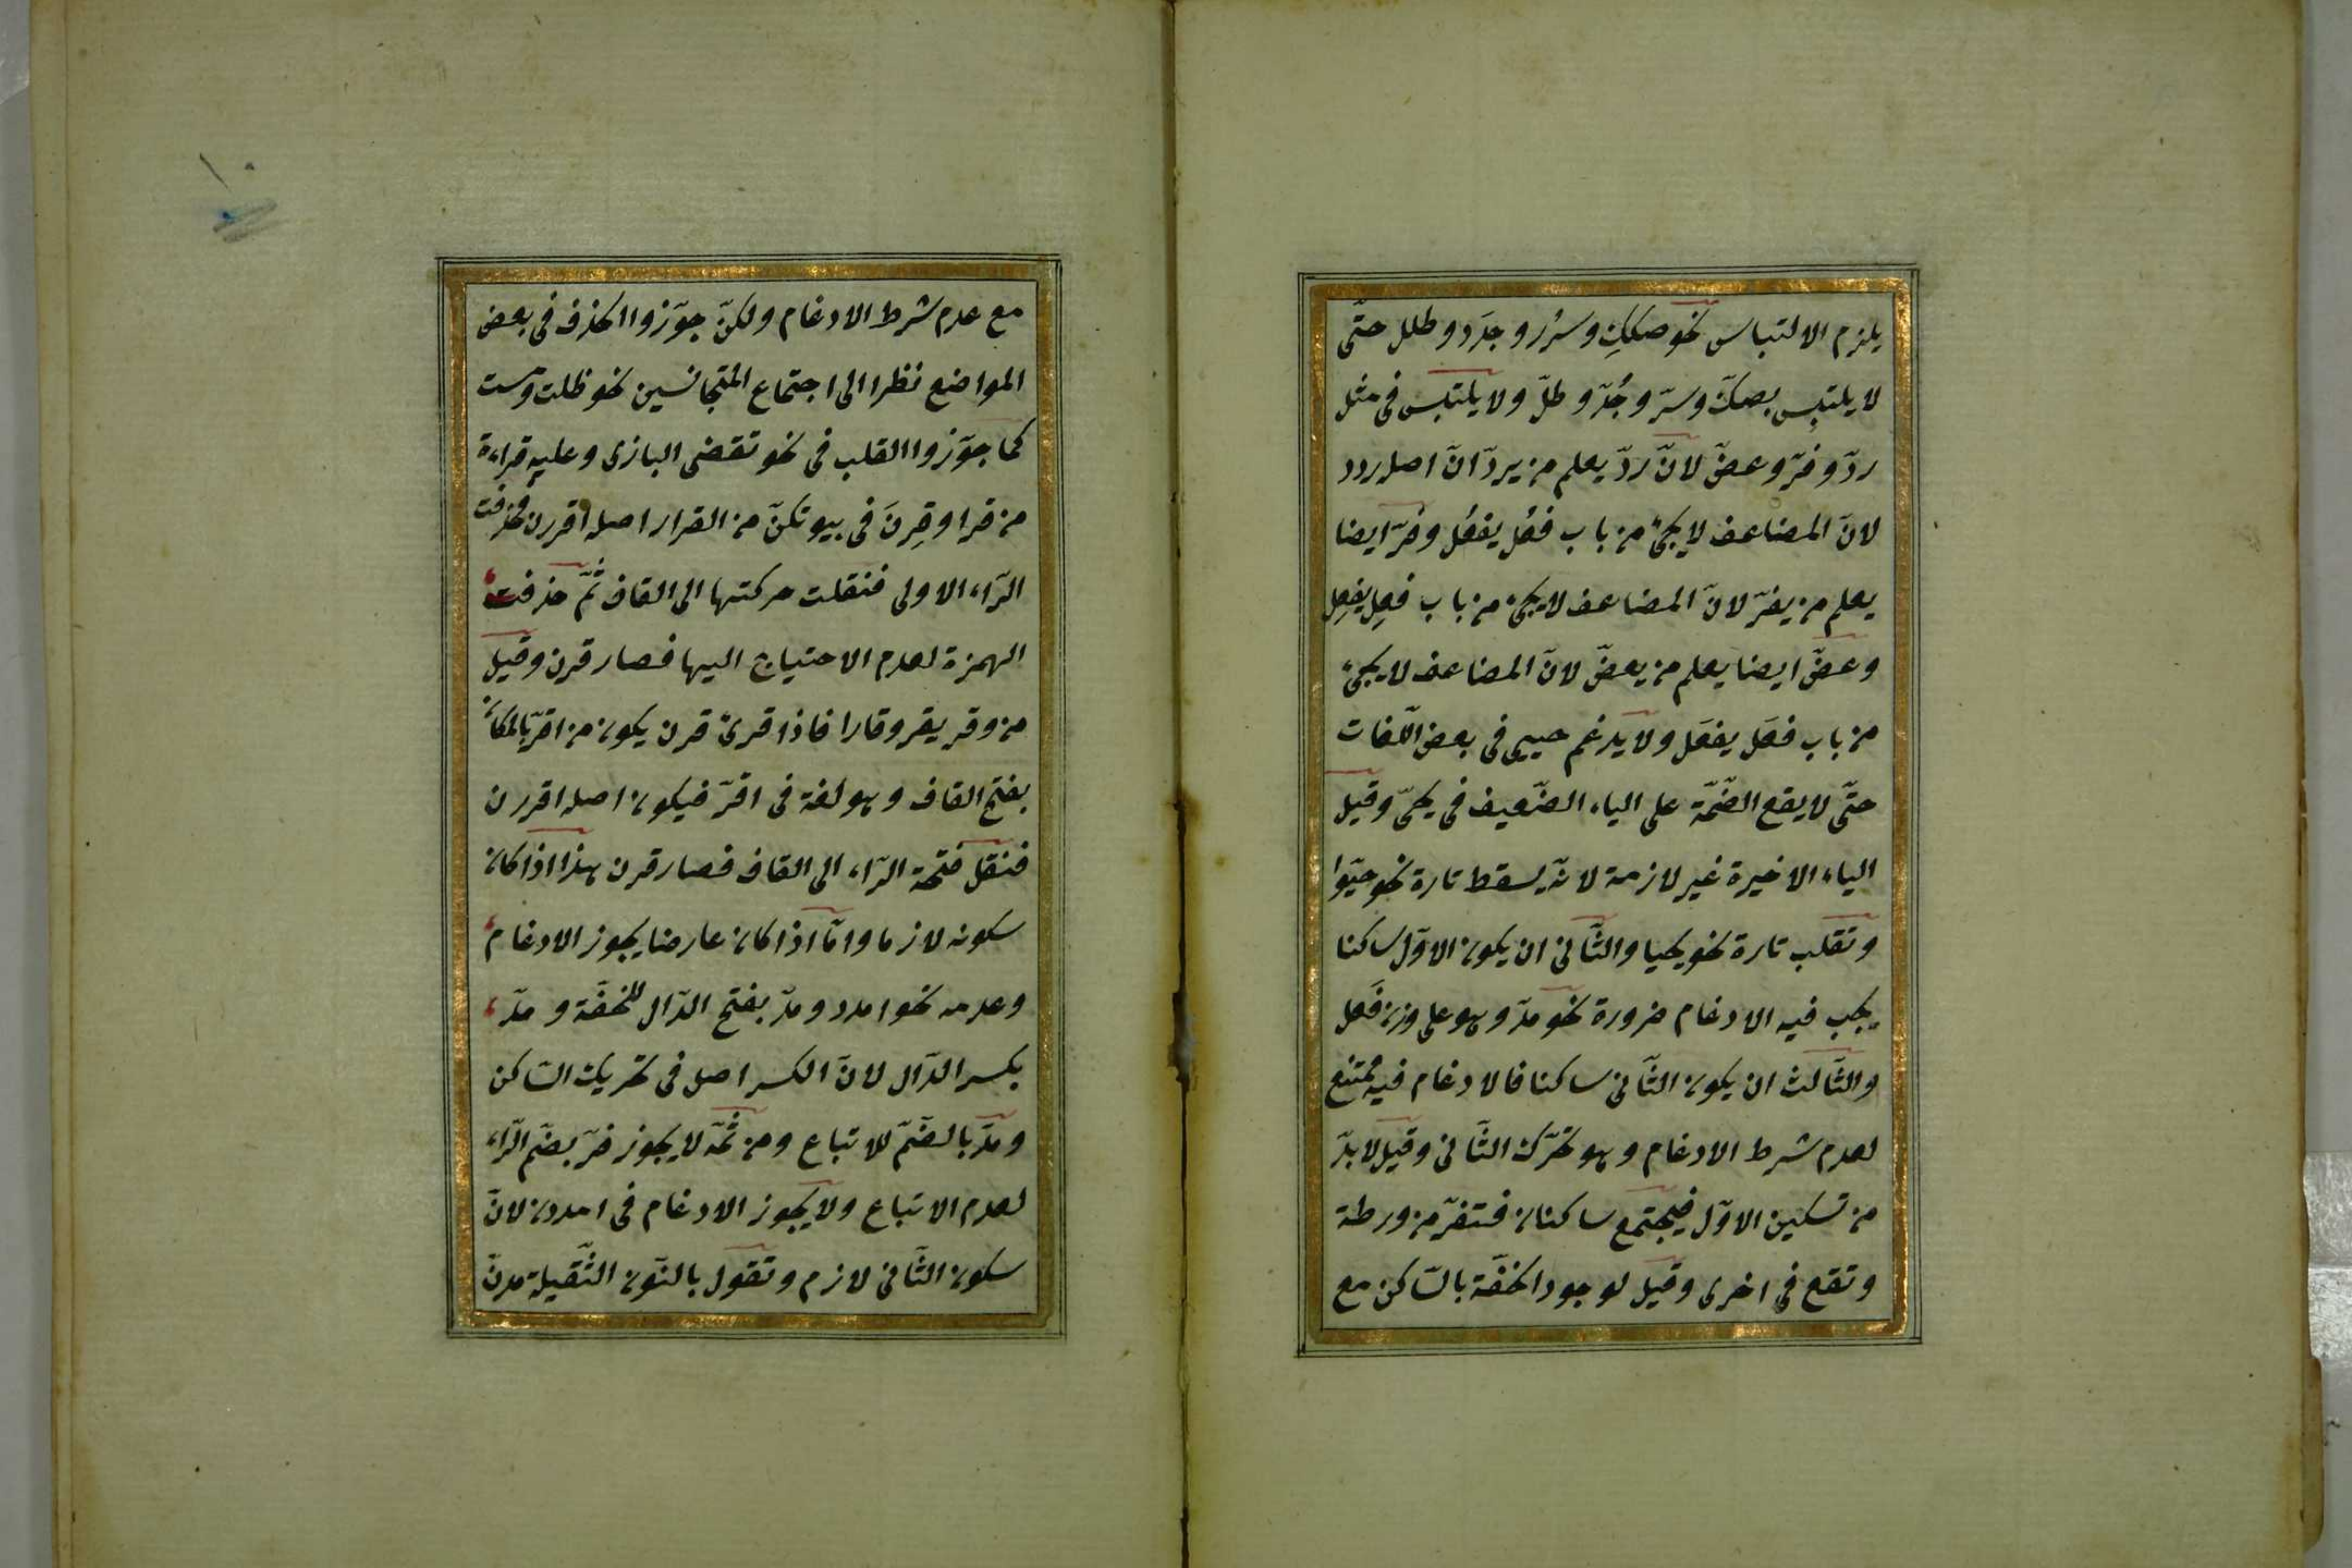 يلزم الالتباس نحو صككٍ وسرر وجدَد وطلل حتّى
لا يلتبِس بصكّ وسرّ وجُدّ وطلّ ولا يلتبس فى مثل
ردّ وفرّ وعضّ لانّ ردّ يعلم من يردّ انّ اصله ردد
لانّ المضاعف لا يجئ من باب فعُل يفعُل وفرّ ايضا
يعلم من يفرّ لانّ المضاعف لا يجئ من باب فعِل يفعِل
وعضّ ايضا يعلم من يعضّ لانّ المضاعف لا يجئ
من باب فعَل يفعَل ولا يدغم حيى فى بعض اللّغات
حتّى لا يقع الضّمّة على الياء الضّعيف فى يحىّ وقيل
الياء الاخيرة غير لازمة لانّه يسقط تارة نحو حيّوا
وتقلب تارة نحو يحيا والثّانى ان يكون الاوّل ساكنا
يجب فيه الادغام ضرورة نحو مدّ وهو على وزن فَعل
والثّالث ان يكون الثّانى ساكنا فالادغام فيه ممتنع
لعدم شرط الادغام وهو تحرّك الثّانى وقيل لا بدّ
من تسكين الاوّل فيجتمع ساكنان فتفرّ من ورطة
وتقع فى اخرى وقيل لوجود الخفّة بالسّاكن مع
مع عدم شرط الادغام ولكنّ جوّزوا الحذف فى بعض
المواضع نظرا الى اجتماع المتجانسين نحو ظلت ومست
كما جوّزوا القلب فى نحو تقضى البازى وعليه قراءة
من قرا وقِرنَ فى بيوتكنّ من القرار اصله اقررن فحذفت
الرّاء الاولى فنقلت حركتها الى القاف ثُمّ حذفت
الهمزة لعدم الاحتياج اليها فصار قرن وقيل
من وقر يقر وقارا فاذا قرئ قرن يكون من اقرّ بالمكان
بفتح القاف وهو لغة فى اقرّ فيكون اصله اقررن
فنقل فتحة الرّاء الى القاف فصار قرن هذا اذا كان
سكونه لازما وامّا اذا كان عارضا يجوز الادغام
وعدمه نحو امدد ومدّ بفتح الدّال للخفّة ومدّ
بكسر الدّال لانّ الكسر اصل فى تحريك السّاكن
ومدّ بالضّمّ للاتباع ومن ثمّه لا يجوز فرّ بضمّ الرّاء
لعدم الاتباع ولا يجوز الادغام فى امددن لانّ
سكون الثّانى لازم وتقول بالنّون الثّقيلة مدنّ
١٠